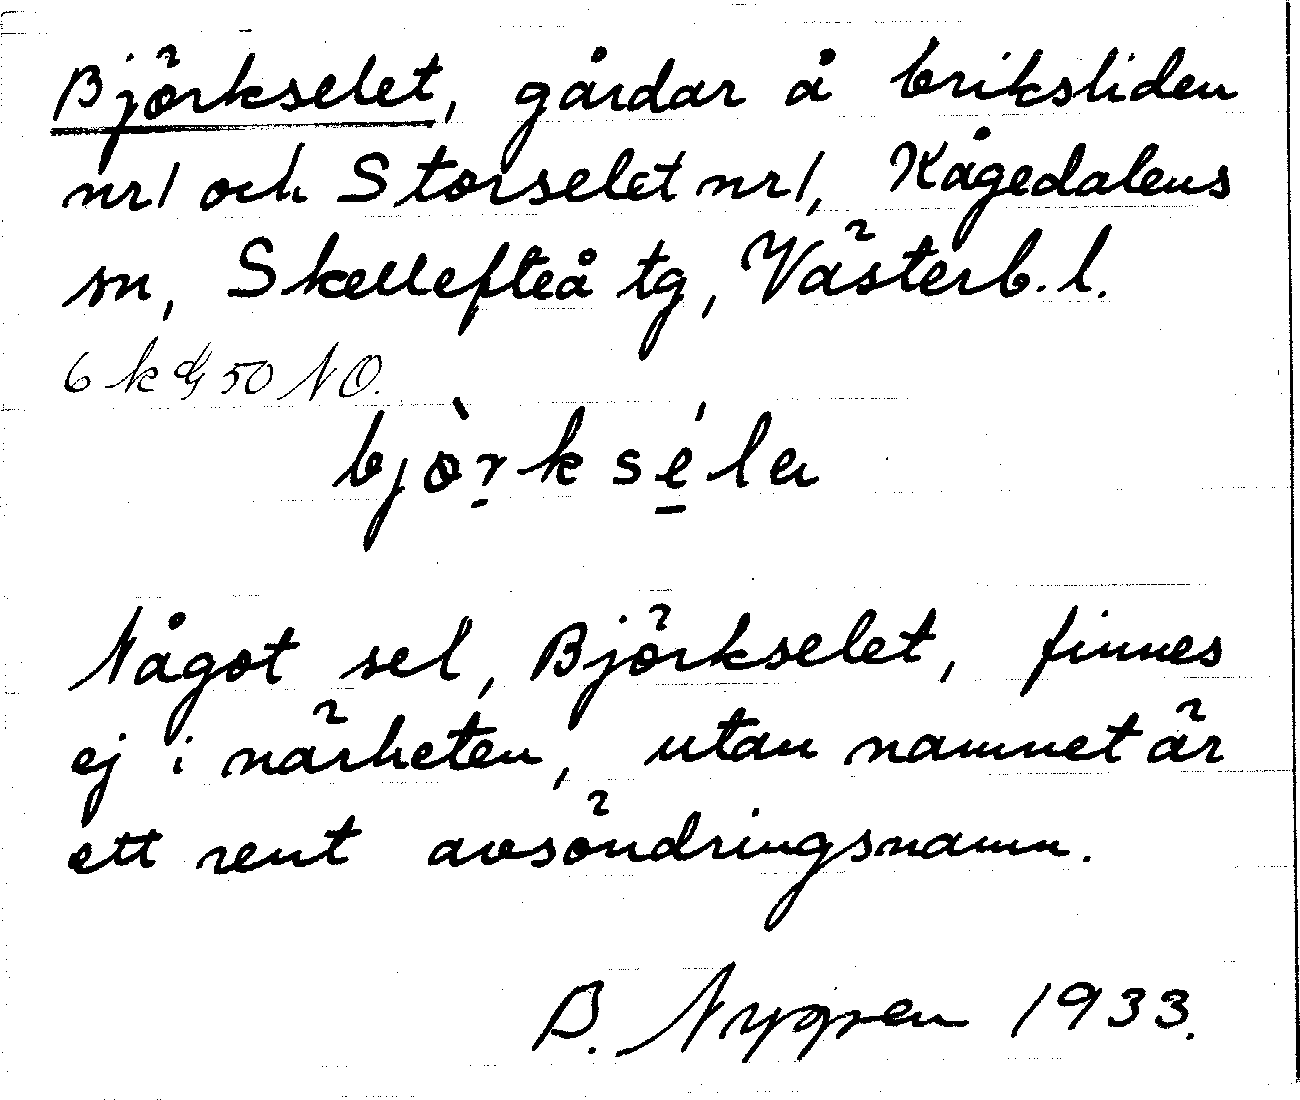 Björkselet, gårdar å Eriksliden
nr 1 och Storselet nr 1, Kågedalens
sn, Skellefteå tg, Västerb. l.
6 k d 50 NO.
bjòrkséla
Något sel, Björkselet, finnes
ej i närheten, utan namnet är
ett rent avsöndringsnamn.
B. Nygren 1933.